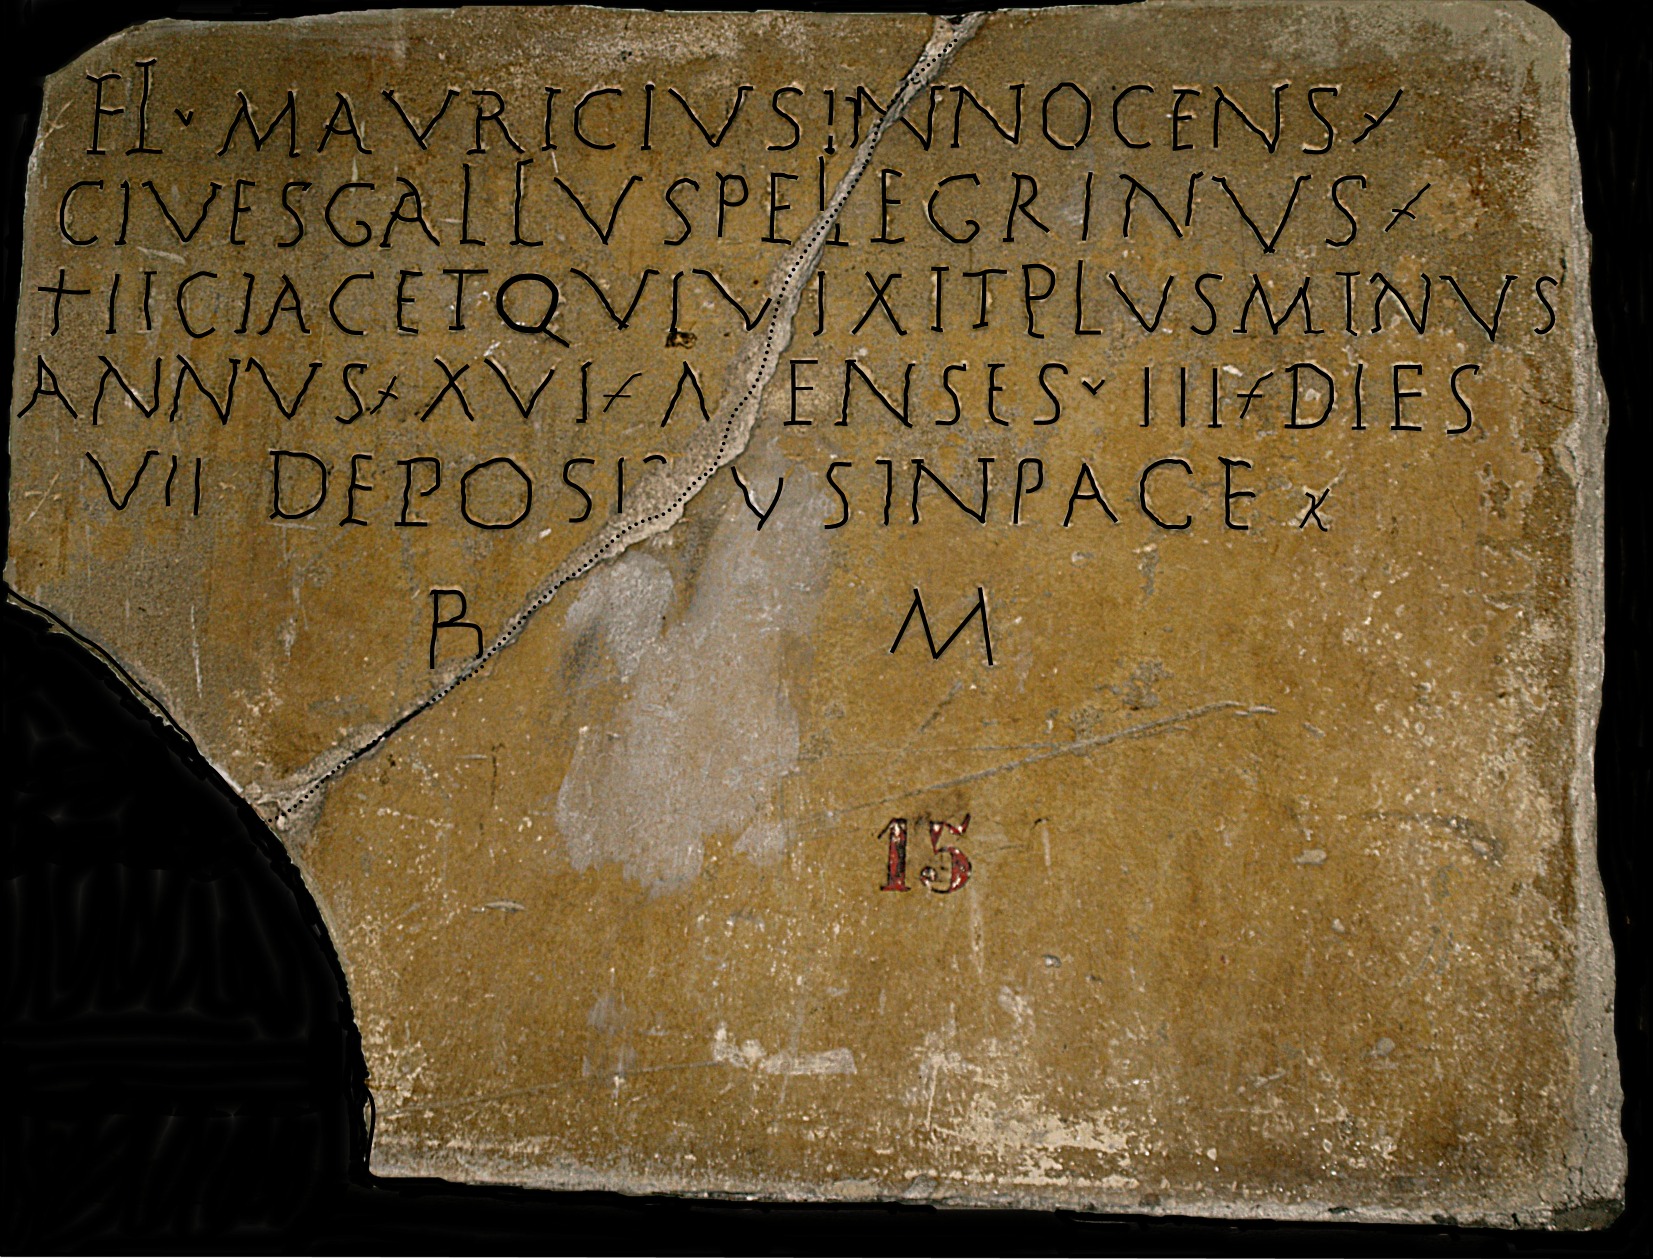 FL · MAVRICIVS INNOCENS
CIVES GALLVS PELEGRINVS
HIC IACET QVI VIXIT PLVS MINVS
ANNVS XVI MENSES III DIES
VII DEPOSITVS IN PACE
B M
15